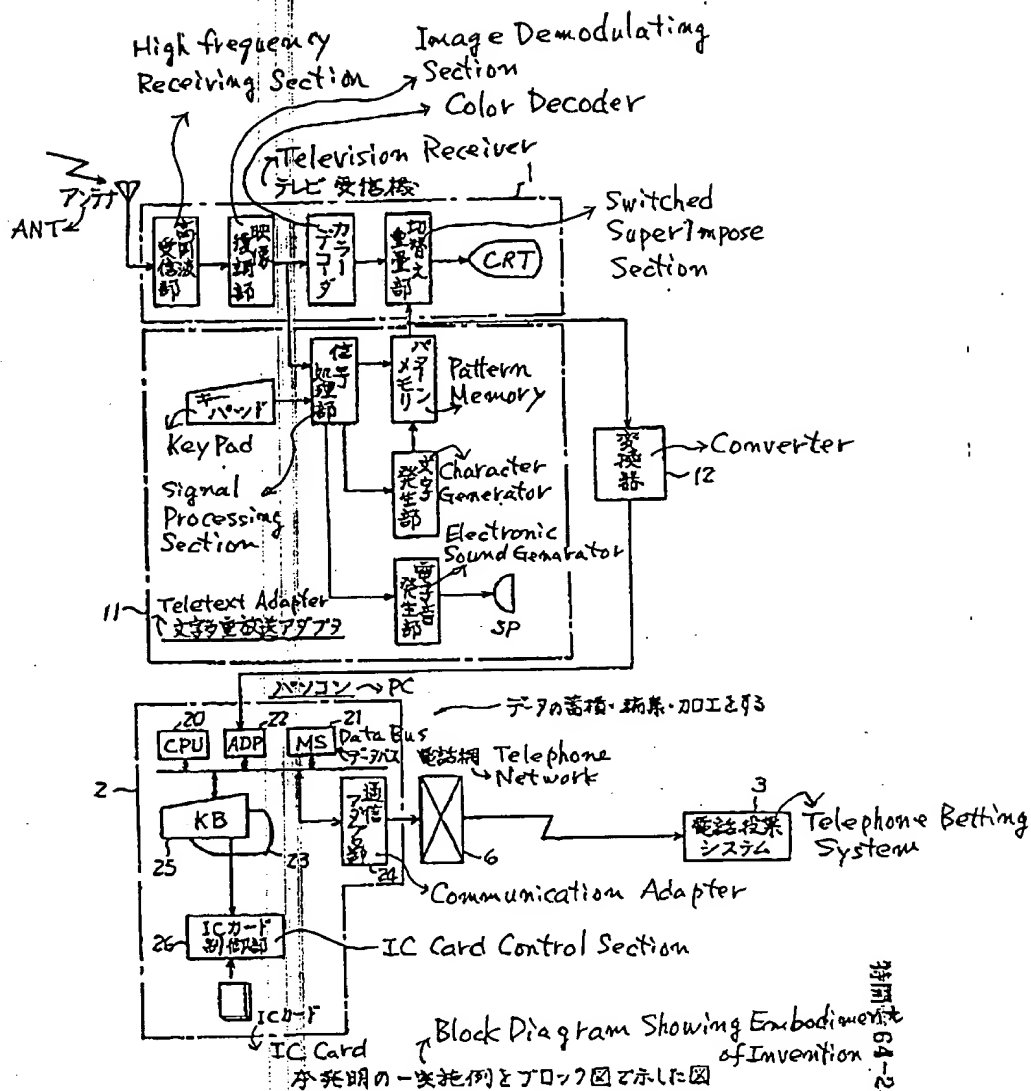 High frequency
Receiving Section
Image Demodulating
Section
Color Decoder
Television Receiver
テレビ受信機
1
アンテナ
ANT
高周波
受信部
映像
復調部
カラー
デコーダ
切替え
重畳部
CRT
Switched
SuperImpose
Section
信号
処理部
パターン
メモリ
Pattern
Memory
キー
パッド
Key Pad
Signal
Processing
Section
文字
発生部
Character
Generator
Electronic
Sound Genarator
電子音
発生部
SP
変換器
Converter
12
11
Teletext Adapter
文字多重放送アダプタ
パソコン → PC
データの蓄積・編集・加工をする
20
22
21
CPU
ADP
MS
Data Bus
データバス
電話網
Telephone
Network
2
KB
通信
アダプタ部
25
23
24
6
3
電話投票
システム
Telephone Betting
System
Communication Adapter
26
ICカード
制御部
IC Card Control Section
ICカード
IC Card
Block Diagram Showing Embodiment
of Invention
本発明の一実施例をブロック図で示した図
特開 64-2